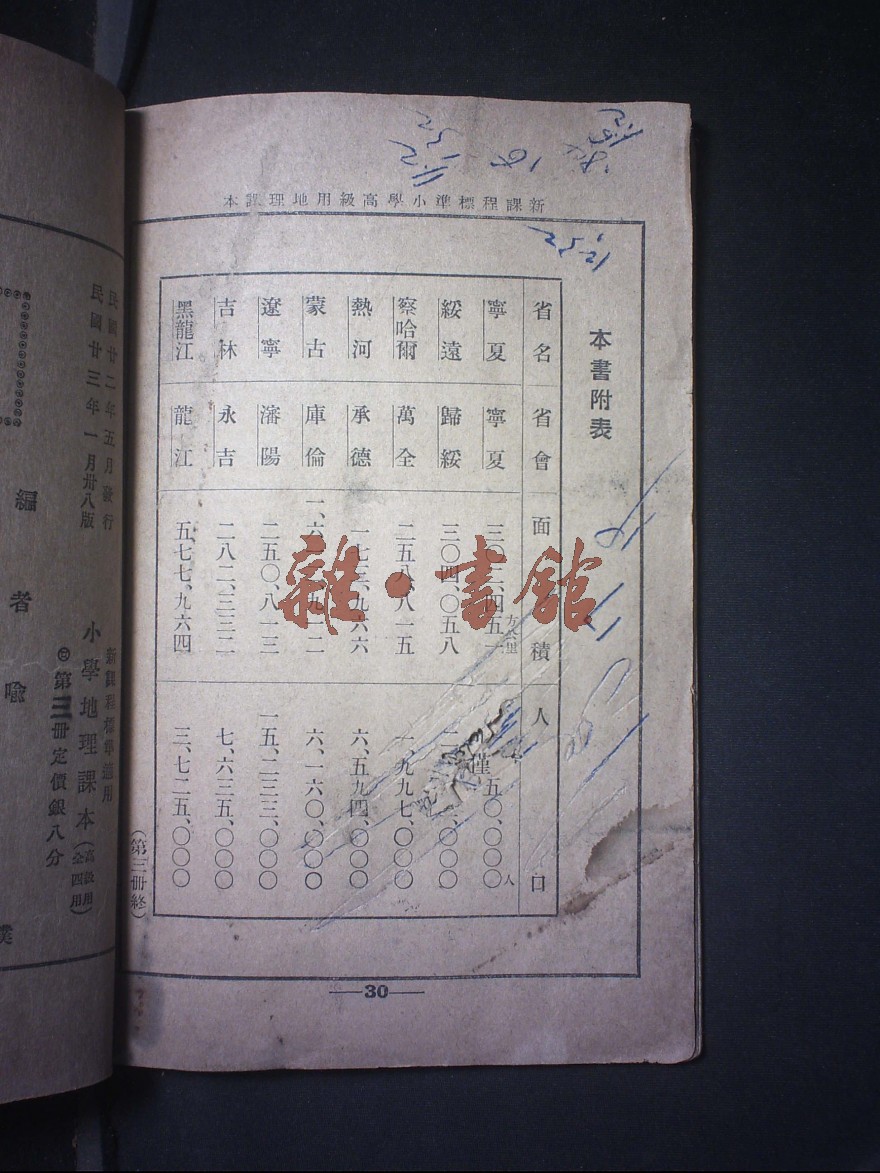 新課程標準小學高級用地理課本
本書附表
省名 省會 面積 人口
寧夏 寧夏 方公里 僅五〇、〇〇〇人
綏遠 歸綏 三〇四、〇五八
察哈爾 萬全 二五八、八一五 一、九九七、〇〇〇
熱河 承德 一七三、九六六 六、五九四、〇〇〇
蒙古 庫倫 六、一六〇、〇〇〇
遼寧 瀋陽 二五〇、八一三 一五、二三三、〇〇〇
吉林 永吉 二八二、三三二 七、六三五、〇〇〇
黑龍江 龍江 五七七、九六四 三、七二五、〇〇〇
(第三冊終)
30
雜·書館
民國廿二年五月發行
民國廿三年一月卅八版
新課程標準適用
小學地理課本(高級用 全四冊)
第三冊定價銀八分
編者喩